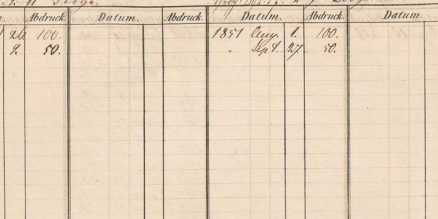 Abdruck. Datum. Abdruck. Datum. Abdruck. Datum.
24 100. 1851 Aug. 1. 100.
2. 50. " Sept. 27 50.